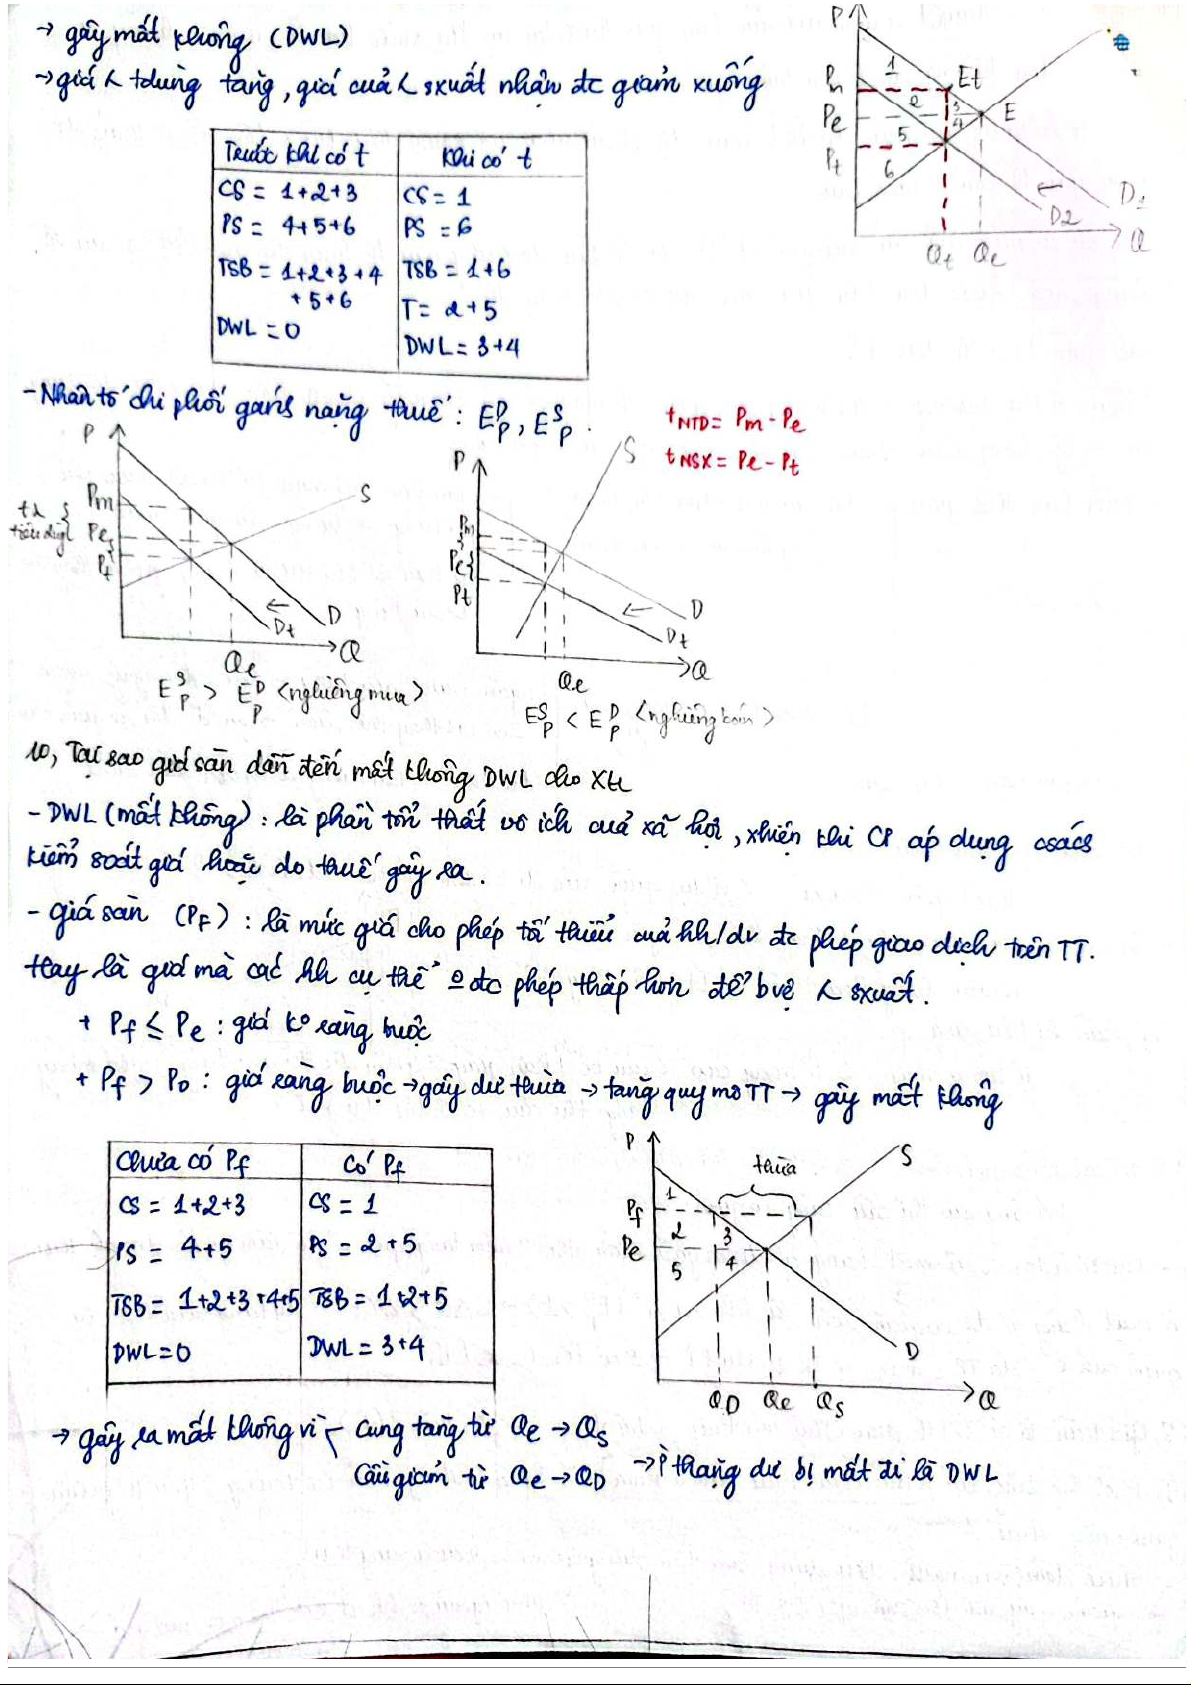 → gây mất không (DWL)
→ giá < tdùng tăng, giá của < sxuất nhận đc giảm xuống
P
Pm
Pe
Pt
1
2
3
4
5
6
Et
E
D1
D2
Qt Qe
Q
Trước khi có t | Khi có t
CS = 1+2+3 | CS = 1
PS = 4+5+6 | PS = 6
TSB = 1+2+3+4 | TSB = 1+6
+5+6 | T = 2+5
DWL = 0 | DWL = 3+4
- Nhân tố chi phối gánh nặng thuế: E^D_P, E^S_P.
t NTD = Pm - Pe
t NSX = Pe - Pt
P
Pm
Pe
Pt
S
D
Dt
Q
Qe
E^S_P > E^D_P <nghiêng mua>
P
Pm
Pe
Pt
S
D
Dt
Q
Qe
E^S_P < E^D_P <nghiêng bán>
10, Tại sao giá sàn dẫn đến mất không DWL cho XH
- DWL (mất không): là phần tổn thất vô ích của xã hội, xhiện khi CP áp dụng csács
kiểm soát giá hoặc do thuế gây ra.
- giá sàn (Pf): là mức giá cho phép tối thiểu của hh/dv đc phép giao dịch trên TT.
Hay là giá mà các hh cụ thể o đc phép thấp hơn để bvệ < sxuất.
+ Pf ≤ Pe: giá ko ràng buộc
+ Pf > Po: giá ràng buộc → gây dư thừa → tăng quy mô TT → gây mất không
Chưa có Pf | Có Pf
CS = 1+2+3 | CS = 1
PS = 4+5 | PS = 2+5
TSB = 1+2+3+4+5 | TSB = 1+2+5
DWL = 0 | DWL = 3+4
P
thừa
S
Pf
Pe
1
2
3
4
5
D
QD Qe Qs
Q
→ gây ra mất không vì < Cung tăng từ Qe → Qs
Cầu giảm từ Qe → QD
→ P thặng dư bị mất đi là DWL